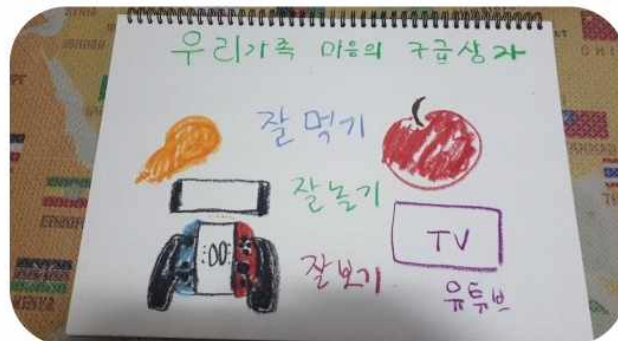 우리가족 마음의 구급상자
잘 먹기
잘놀기
TV
잘보기
유튜브